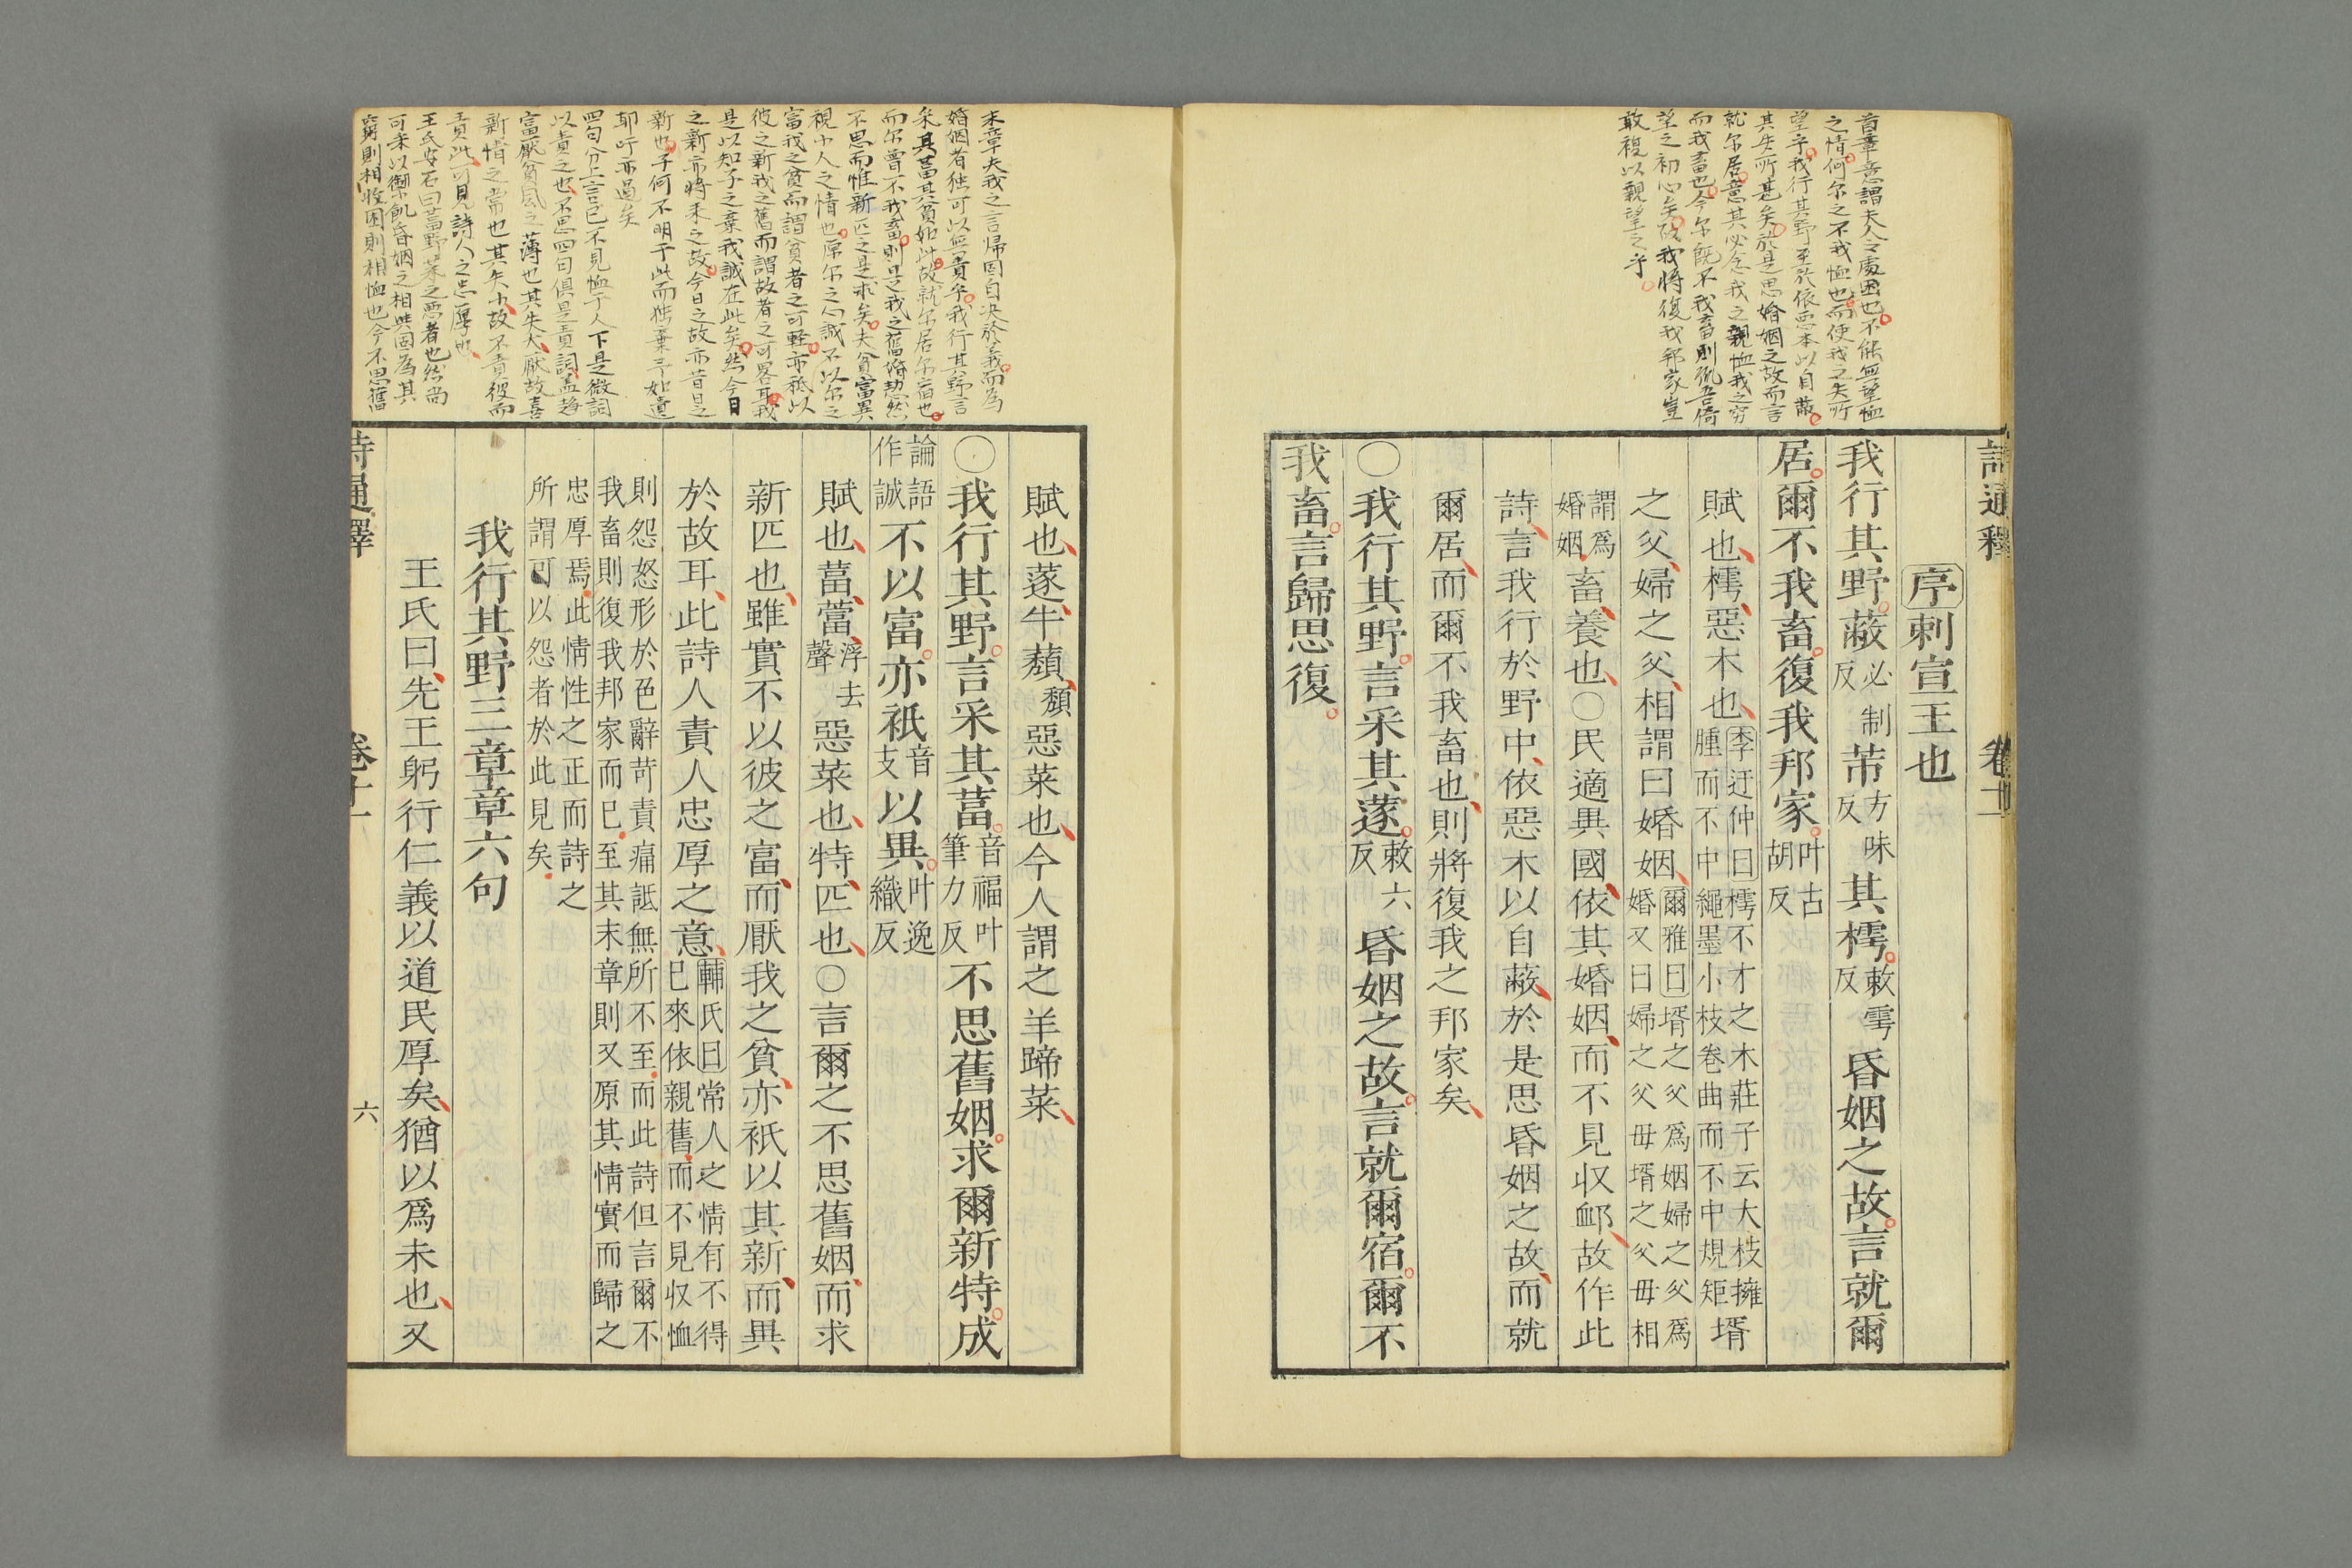 首章意謂夫人之處困也不能無望恤
之情何尔之不我恤也而使我之失所
望乎我行其野至於依惡木以自蔽
其失所甚矣於是思婚姻之故而言
就尔居意其必念我之親恤我之窮
而我畜也今尔既不我畜則孤吾倚
望之初心矣故我將復我邦家豈
敢複以親望之乎
詩通釋 卷十一
序刺宣王也
我行其野蔽必制反芾方味反其樗敕雩反昏姻之故言就爾
居爾不我畜復我邦家叶古胡反
賦也樗惡木也李迂仲曰樗不才之木莊子云大枝擁腫而不中繩墨小枝卷曲而不中規矩壻
之父婦之父相謂曰婚姻爾雅曰壻之父爲姻婦之父爲婚又曰婦之父毋壻之父毋相
謂爲婚姻畜養也○民適異國依其婚姻而不見収卹故作此
詩言我行於野中依惡木以自蔽於是思昏姻之故而就
爾居而爾不我畜也則將復我之邦家矣
○我行其野言采其蓫敕六反昏姻之故言就爾宿爾不
我畜言歸思復
末章夫我之言歸固自决於義而為
婚姻者独可以無責乎我行其野言
采其葍其貧如此故就尔居尔宿也
而尔曽不我畜則是我之舊婚恝然
不思而惟新匹之是求矣夫貧富異
視小人之情也原尔之心誠不以尔之
富我之貧而謂貧者之可軽亦祗以
彼之新我之舊而謂故者之可畧耳我
是以知子之棄我誠在此矣然今日
之新亦將来之故今日之故亦昔日之
新也子何不明于此而独棄予如遺
耶吁亦過矣
四句分上言已不見恤于人下是微詞
以責之也不思四句俱是責詞盖趋
富厭貧風之薄也其失大厭故喜
新情之常也其失小故不責彼而
責此可見詩人之忠厚也
王氏安石曰葍野菜之悪者也然尚
可采以禦飢昏姻之相與固為其
窮則相收困則相恤也今不思舊
賦也蓫牛蘈頽惡菜也今人謂之羊蹄菜
○我行其野言采其葍音福叶筆力反不思舊姻求爾新特成
論語作誠不以富亦祇音支以異叶逸織反
賦也葍䔰浮去聲惡菜也特匹也○言爾之不思舊姻而求
新匹也雖實不以彼之富而厭我之貧亦祇以其新而異
於故耳此詩人責人忠厚之意輔氏曰常人之情有不得已來依親舊而不見収恤
則怨怒形於色辭苛責痛詆無所不至而此詩但言爾不我畜則復我邦家而已至其末章則又原其情實而歸之
忠厚焉此情性之正而詩之所謂可以怨者於此見矣
我行其野三章章六句
王氏曰先王躬行仁義以道民厚矣猶以爲未也又
詩通釋 卷十一 六